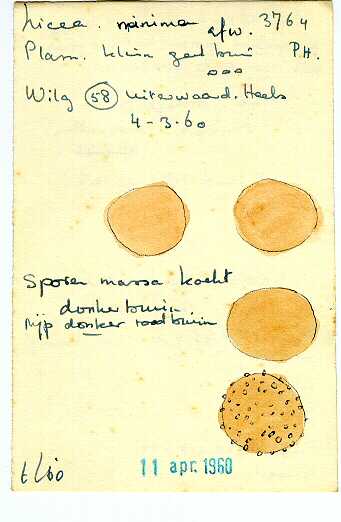 Licea. minima afw. 3764
Plasm. klein geel bruin PH.
Wilg 58 uiterwaard. Heels
4-3-60
Sporen massa kocht
donker bruin
rijp donker rood bruin
11 apr. 1960